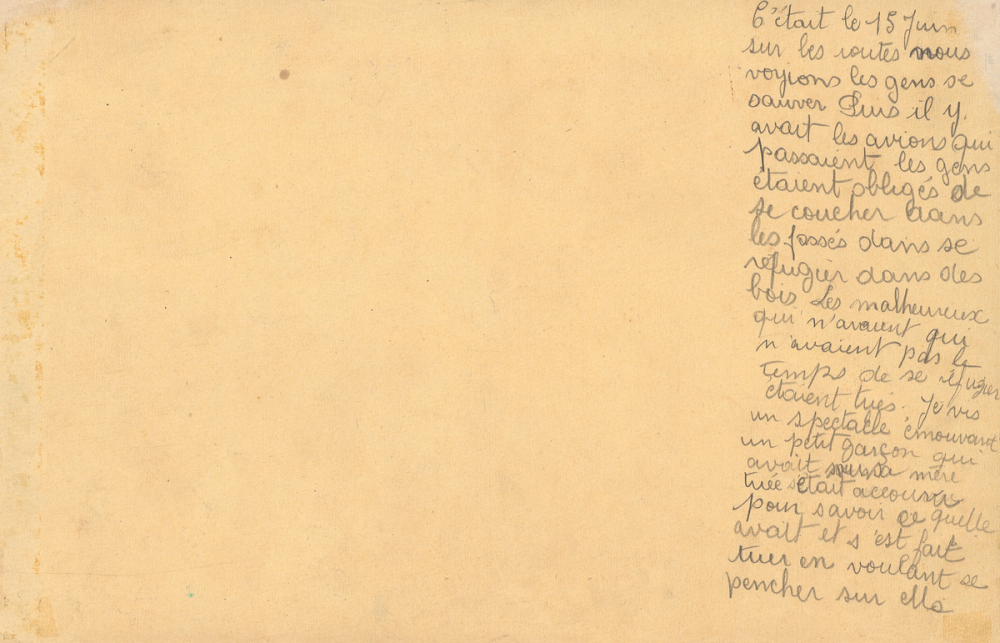 C'était le 15 Juin
sur les routes nous
voyions les gens se
sauver Puis il y
avait les avions qui
passaient les gens
étaient obligés de
se coucher dans
les fossés dans se
réfugier dans des
bois Les malheureux
qui n'avaient qui
n'avaient pas le
temps de se réfugier
étaient tués. Je vis
un spectacle émouvant
un petit garçon qui
avait sa mère
tuée était accouru
pour savoir ce quelle
avait et s'est fait
tuer en voulant se
pencher sur elle